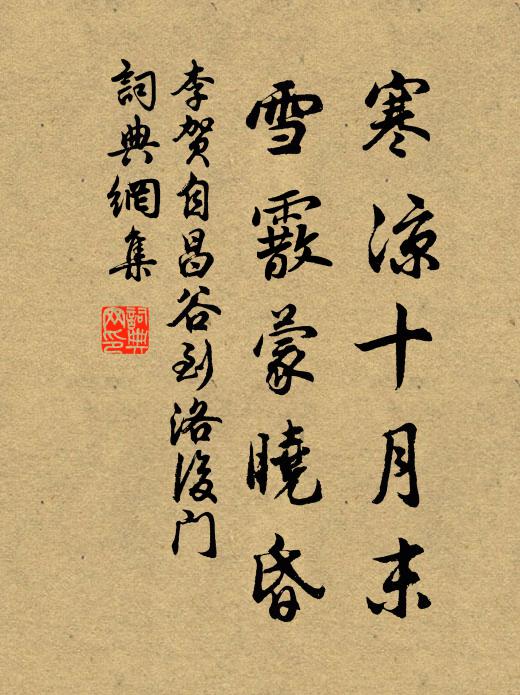 寒涼十月末
雪霰蒙曉昏
李賀自昌谷到洛後門
詞典網集
詞典网印